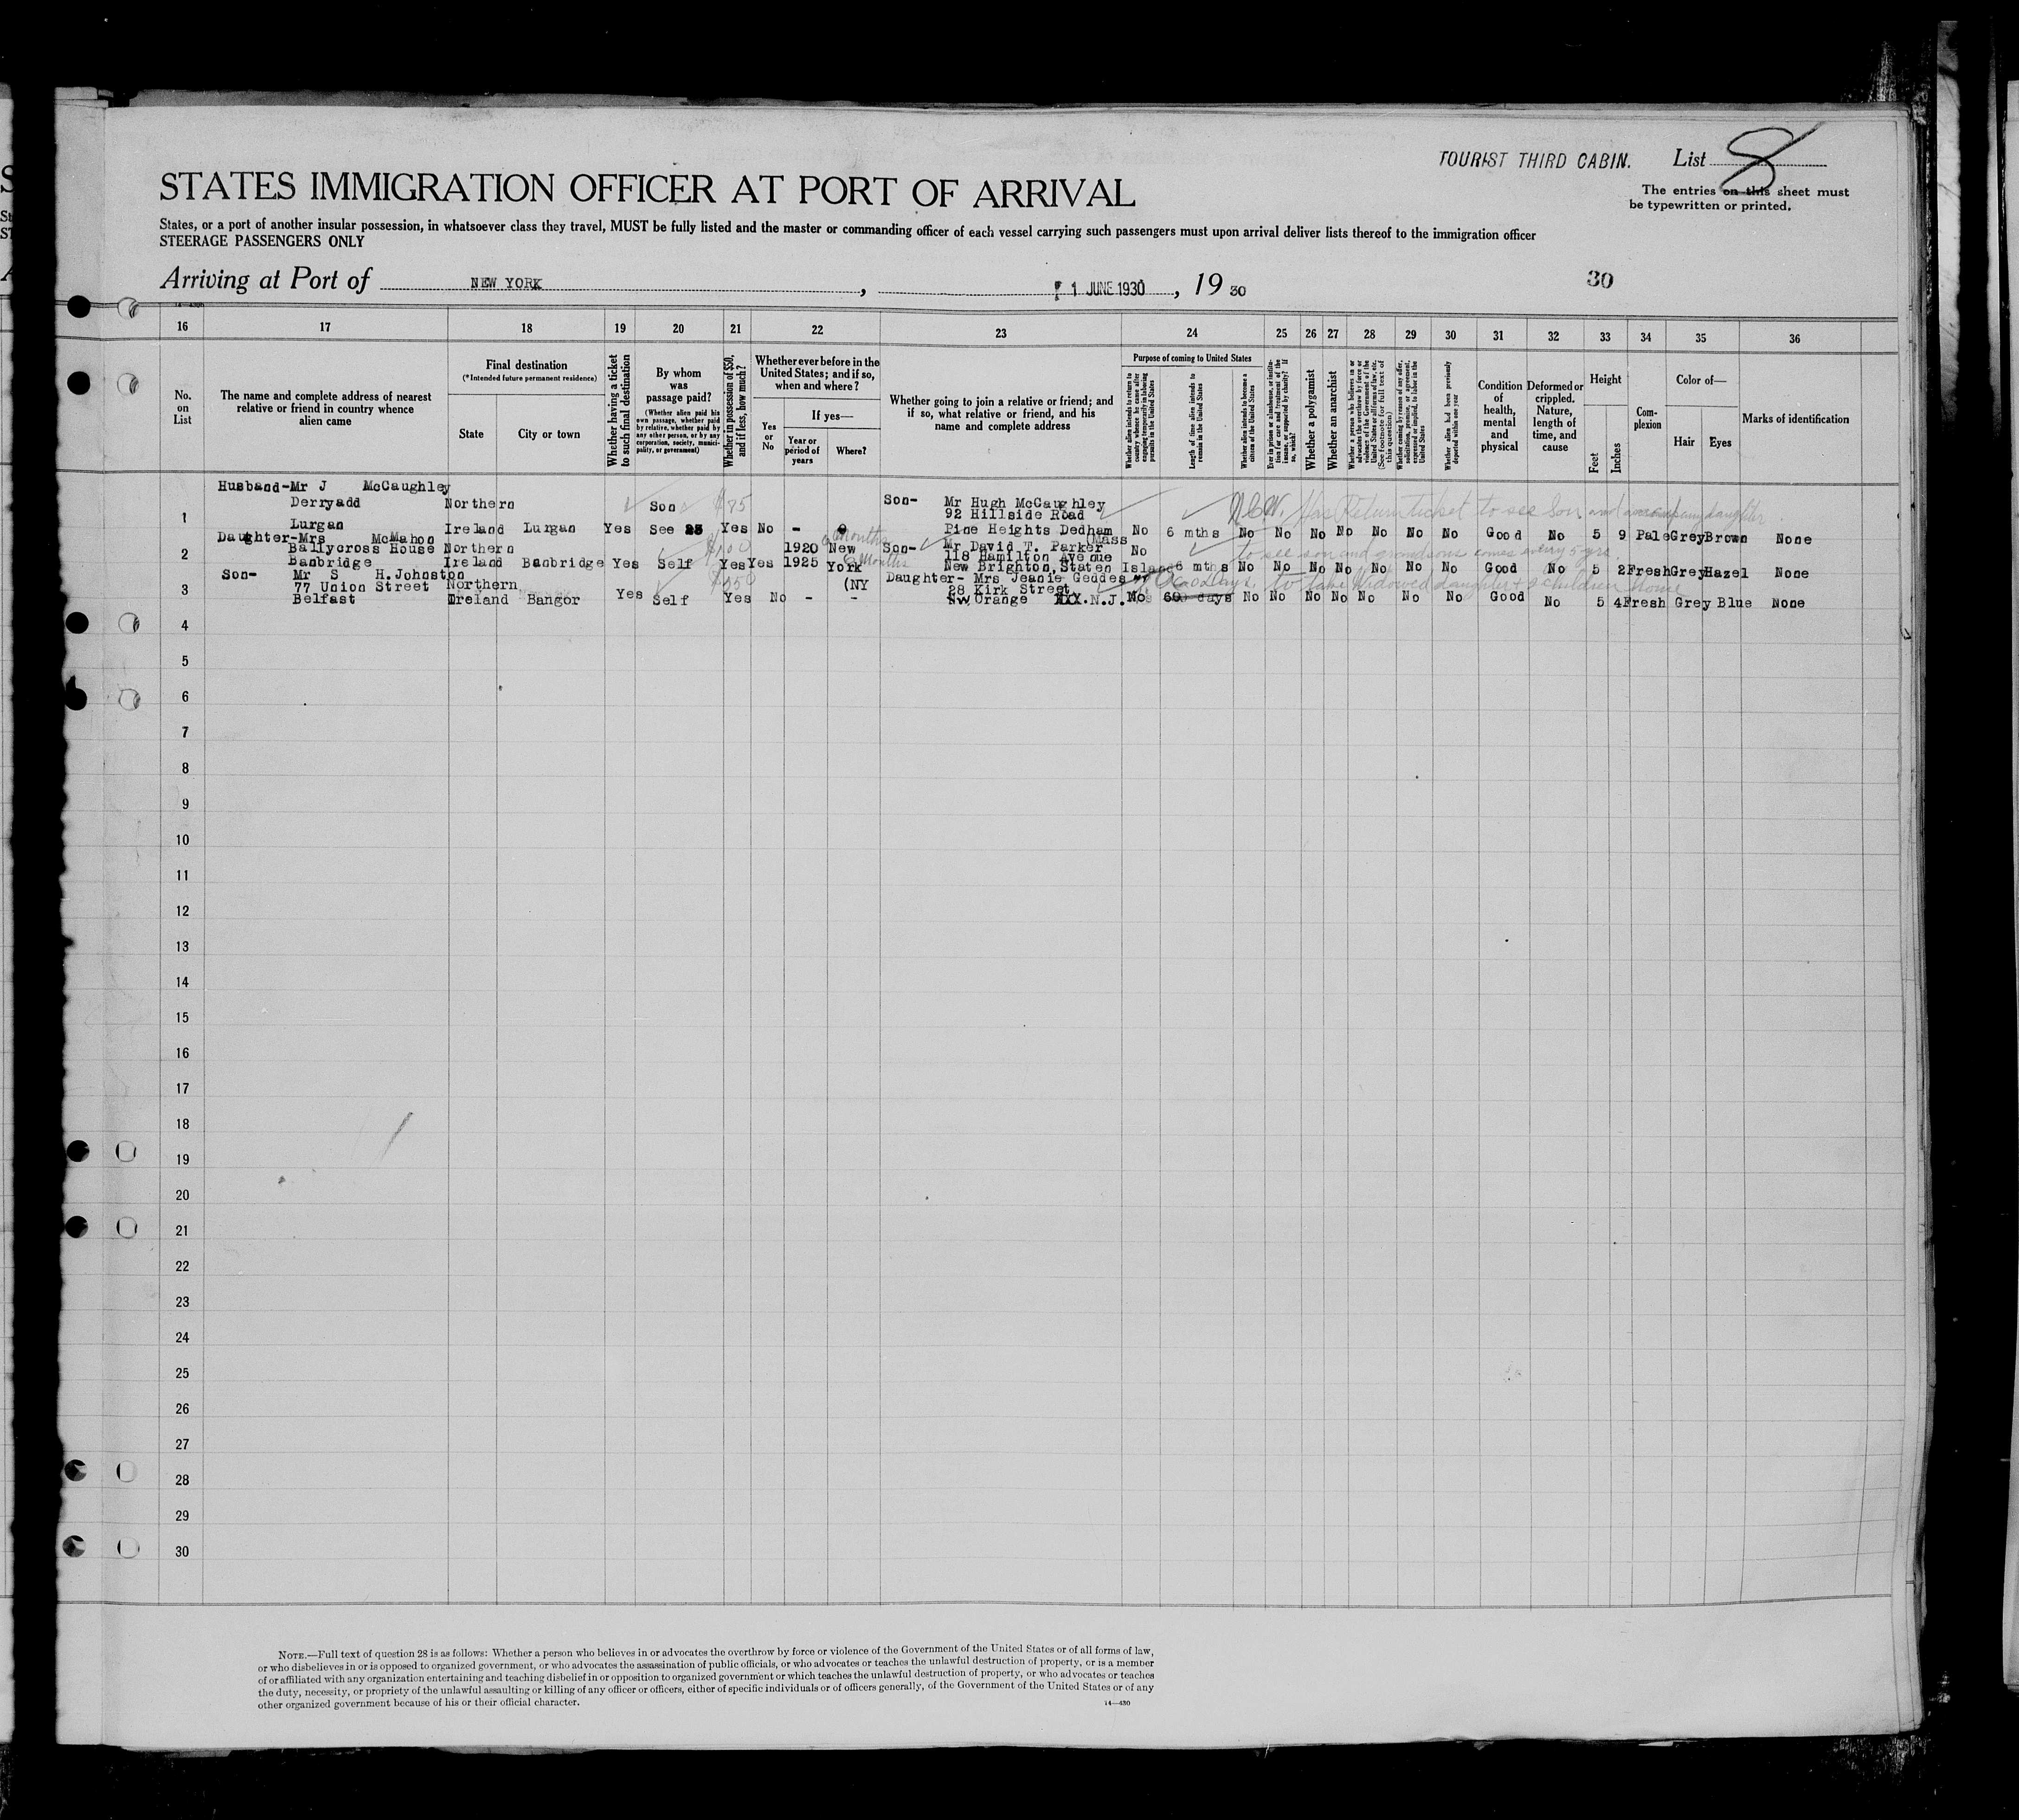 TOURIST THIRD CABIN. List 8
STATES IMMIGRATION OFFICER AT PORT OF ARRIVAL
The entries on this sheet must
be typewritten or printed.
States, or a port of another insular possession, in whatsoever class they travel, MUST be fully listed and the master or commanding officer of each vessel carrying such passengers must upon arrival deliver lists thereof to the immigration officer
STEERAGE PASSENGERS ONLY
Arriving at Port of NEW YORK, 1 JUNE 1930, 19 30
30
16 17 18 19 20 21 22 23 24 25 26 27 28 29 30 31 32 33 34 35 36
No.
on
List
The name and complete address of nearest
relative or friend in country whence
alien came
Final destination
(*Intended future permanent residence)
State
City or town
Whether having a ticket
to such final destination
By whom
was
passage paid?
(Whether alien paid his
own passage, whether paid
by relative, whether paid by
any other person, or by any
corporation, society, munici-
pality, or government)
Whether in possession of $50,
and if less, how much?
Whether ever before in the
United States; and if so,
when and where?
Yes
or
No
If yes—
Year or
period of
years
Where?
Whether going to join a relative or friend; and
if so, what relative or friend, and his
name and complete address
Purpose of coming to United States
Whether alien intends to return to
country whence he came after
engaging temporarily in laboring
pursuits in the United States
Length of time alien intends to
remain in the United States
Whether alien intends to become a
citizen of the United States
Ever in prison or almshouse, or institu-
tion for care and treatment of the
insane, or supported by charity? If
so, which?
Whether a polygamist
Whether an anarchist
Whether a person who believes in or
advocates the overthrow by force or
violence of the Government of the
United States or all forms of law, etc.
(See footnote for full text of
this question)
Whether coming by reason of any offer,
solicitation, promise, or agreement,
expressed or implied, to labor in the
United States
Whether alien had been previously
deported within one year
Condition
of
health,
mental
and
physical
Deformed or
crippled.
Nature,
length of
time, and
cause
Height
Feet
Inches
Com-
plexion
Color of—
Hair
Eyes
Marks of identification
Husband-Mr J McCaughley
Derryadd Northern Son $85 Son- Mr Hugh McCaughley
92 Hillside Road
Has Return ticket to see Son and accompany daughter
1 Lurgan Ireland Lurgan Yes See 23 Yes No - Pine Heights Dedham No 6 mths No No No No No No No Good No 5 9 Pale Grey Brown None
(Mass
Daughter-Mrs McMahon
2 Ballycross House Northern $100 1920 New 6 Months Son- Mr David T. Parker No
118 Hamilton Avenue
to see son and grandsons comes every 5 yrs.
Banbridge Ireland Banbridge Yes Self Yes Yes 1925 York 6 Months New Brighton, Staten Island 6 mths No No No No No No No Good No 5 2 Fresh Grey Hazel None
(NY
Son- Mr S H.Johnston
3 77 Union Street Northern $150 Daughter- Mrs Jeanie Geddes
28 Kirk Street
60 days. to take widowed daughter + 2 children home
Belfast Ireland Bangor Yes Self Yes No - - W Orange XXX.N.J. No 60 days No No No No No No No Good No 5 4 Fresh Grey Blue None
4
5
6
7
8
9
10
11
12
13
14
15
16
17
18
19
20
21
22
23
24
25
26
27
28
29
30
NOTE.—Full text of question 28 is as follows: Whether a person who believes in or advocates the overthrow by force or violence of the Government of the United States or of all forms of law,
or who disbelieves in or is opposed to organized government, or who advocates the assassination of public officials, or who advocates or teaches the unlawful destruction of property, or is a member
of or affiliated with any organization entertaining and teaching disbelief in or opposition to organized government or which teaches the unlawful destruction of property, or who advocates or teaches
the duty, necessity, or propriety of the unlawful assaulting or killing of any officer or officers, either of specific individuals or of officers generally, of the Government of the United States or of any
other organized government because of his or their official character.
14—430